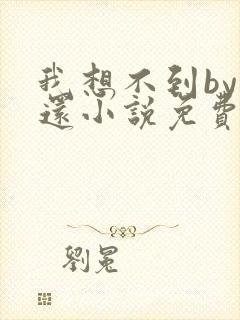 我想不到by
還小說免費
劉冕